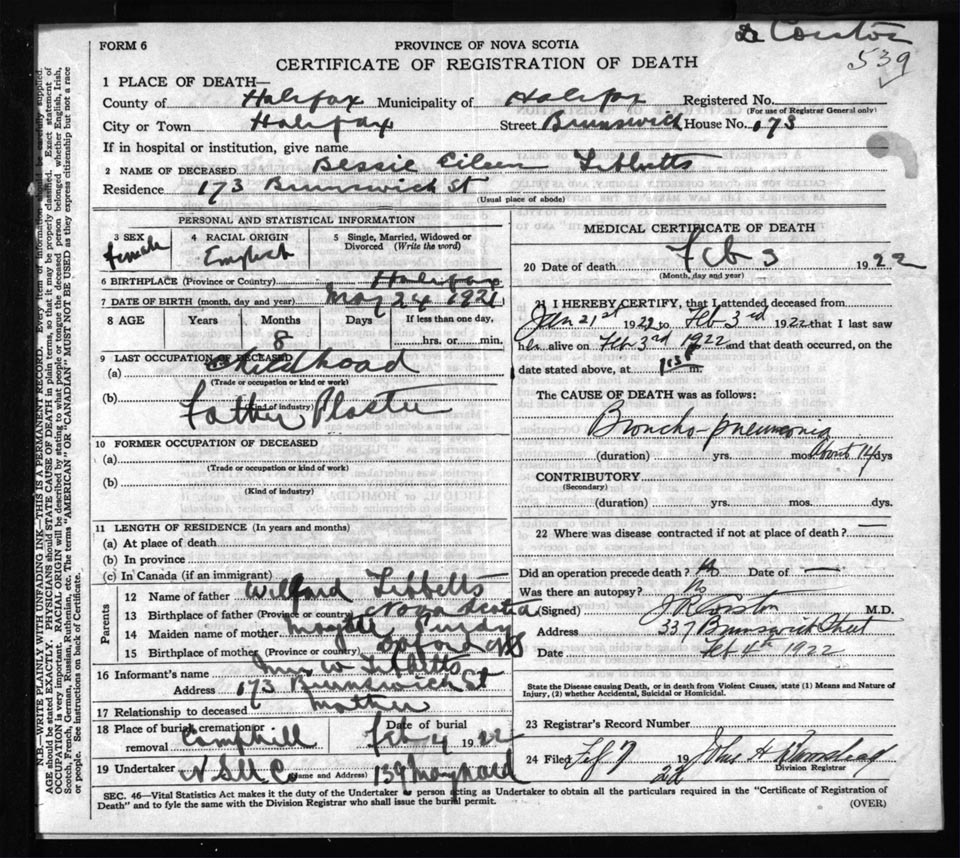 Dr Corston
FORM 6
PROVINCE OF NOVA SCOTIA
539
CERTIFICATE OF REGISTRATION OF DEATH
1 PLACE OF DEATH—
County of Halifax Municipality of Halifax Registered No.
(For use of Registrar General only)
City or Town Halifax Street Brunswick House No. 173
If in hospital or institution, give name
2 NAME OF DECEASED Bessie Eileen Tibbetts
Residence 173 Brunswick St
(Usual place of abode)
PERSONAL AND STATISTICAL INFORMATION
3 SEX female 4 RACIAL ORIGIN English 5 Single, Married, Widowed or Divorced (Write the word)
6 BIRTHPLACE (Province or Country) Halifax
7 DATE OF BIRTH (month, day and year) May 24 1921
8 AGE Years Months Days If less than one day,
8 hrs. or min.
9 LAST OCCUPATION OF DECEASED
(a) Childhood
(Trade or occupation or kind or work)
(b) Father
(Kind of industry)
10 FORMER OCCUPATION OF DECEASED
(a)
(Trade or occupation or kind or work)
(b)
(Kind of industry)
11 LENGTH OF RESIDENCE (In years and months)
(a) At place of death
(b) In province
(c) In Canada (if an immigrant)
Parents
12 Name of father Wilfard Tibbetts
13 Birthplace of father (Province or country) Nova Scotia
14 Maiden name of mother
15 Birthplace of mother (Province or country) NS
16 Informant's name W Tibbetts
Address 173 Brunswick St
17 Relationship to deceased Mother
18 Place of burial, cremation or removal Camphill Date of burial Feb 4 1922
19 Undertaker N S U Co (Name and Address) 139 Maynard
MEDICAL CERTIFICATE OF DEATH
20 Date of death Feb 3 1922
(Month, day and year)
21 I HEREBY CERTIFY, that I attended deceased from
Jan 21st 1922 to Feb 3rd 1922 that I last saw
her alive on Feb 3rd 1922 and that death occurred, on the
date stated above, at m.
The CAUSE OF DEATH was as follows:
Broncho-pneumonia
(duration) yrs. mos. About 14 dys
CONTRIBUTORY
(Secondary)
(duration) yrs. mos. dys.
22 Where was disease contracted if not at place of death? —
Did an operation precede death? No Date of —
Was there an autopsy? No
(Signed) J R Corston M.D.
Address 337 Brunswick Street
Date Feb 4th 1922
State the Disease causing Death, or in death from Violent Causes, state (1) Means and Nature of
Injury, (2) whether Accidental, Suicidal or Homicidal.
23 Registrar's Record Number
24 Filed Feb 7 19 22 John H
Division Registrar
SEC. 46—Vital Statistics Act makes it the duty of the Undertaker or person acting as Undertaker to obtain all the particulars required in the "Certificate of Registration of
Death" and to fyle the same with the Division Registrar who shall issue the burial permit.
(OVER)
N.B.—WRITE PLAINLY WITH UNFADING INK—THIS IS A PERMANENT RECORD. Every item of information should be carefully supplied.
AGE should be stated EXACTLY. PHYSICIANS should STATE CAUSE OF DEATH in plain terms, so that it may be properly classified. Exact statement of
OCCUPATION is very important. RACIAL ORIGIN will be described by stating to what people or tongue the deceased person belonged, whether English, Irish,
Scotch, French, German, Russian, Ruthenian, etc. The terms "AMERICAN" OR "CANADIAN" MUST NOT BE USED as they express citizenship but not a race
or people. See instructions on back of Certificate.